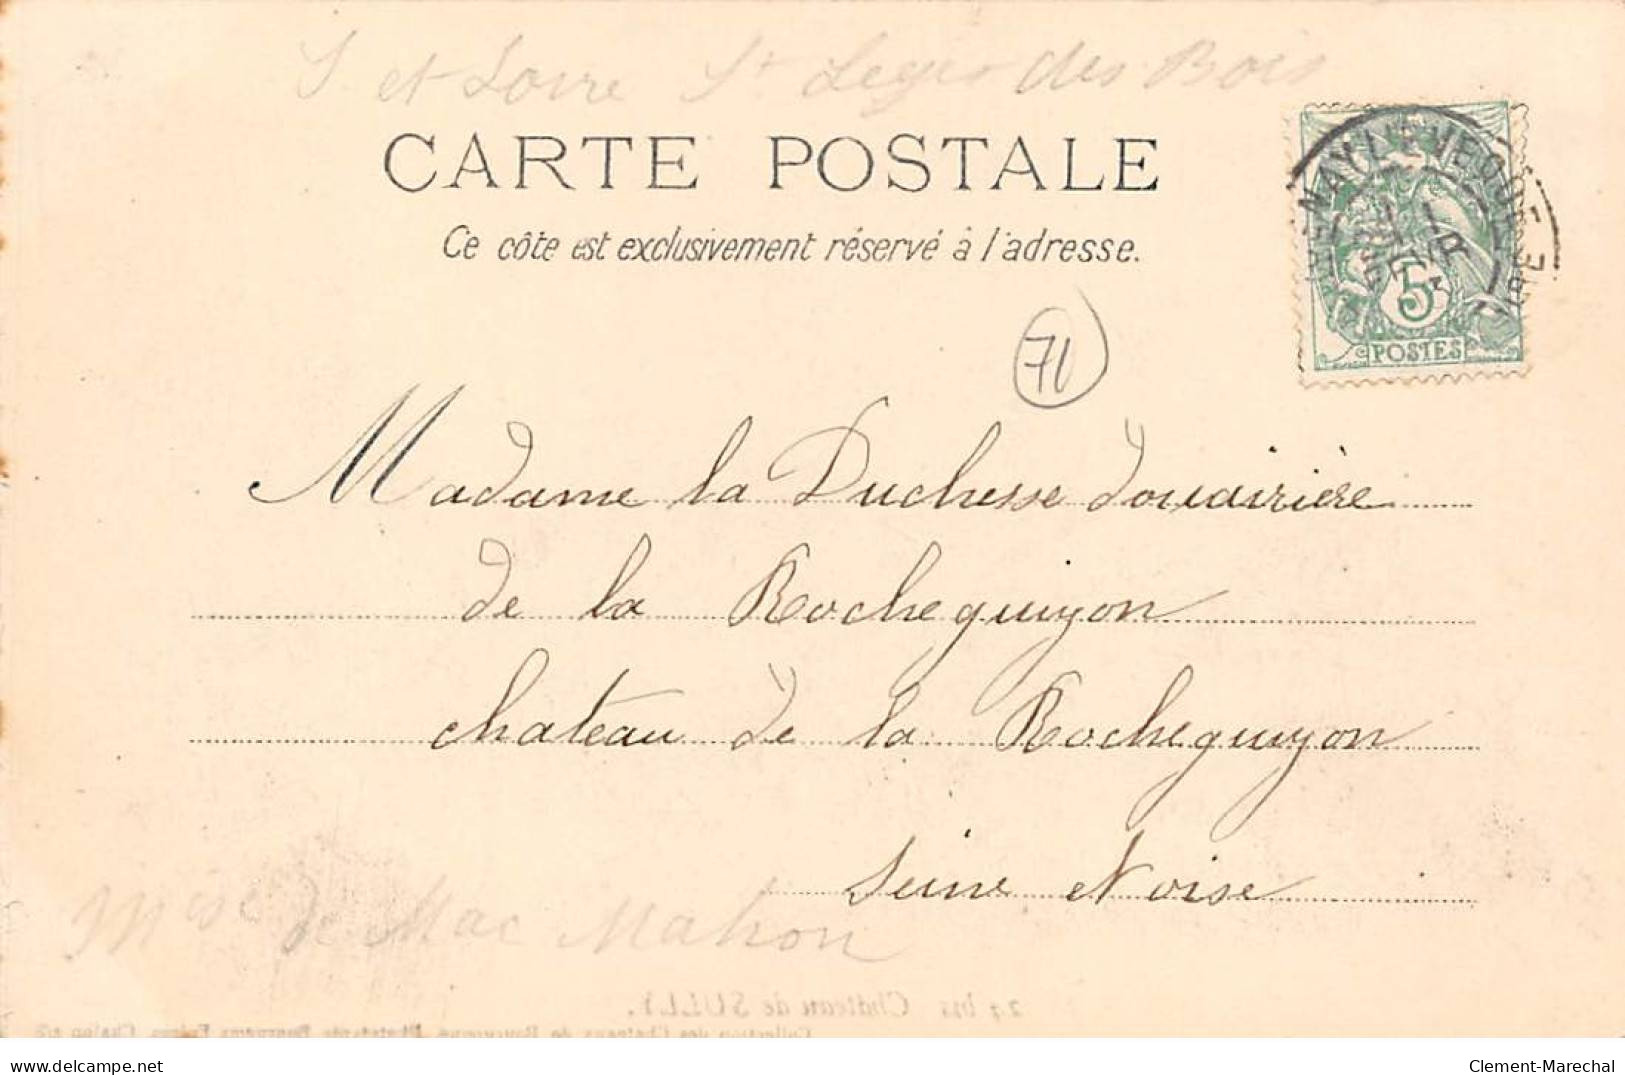 S. et Loire St Leger des Bois
CARTE POSTALE
Ce côte est exclusivement réservé à l'adresse.
5
POSTES
71
Madame la Duchesse douairière
de la Rocheguyon
chateau de la Rocheguyon
Seine et oise
Mise de Mac Mahon
24 bis Château de SULLY.
Collection des Chateaux de Bourgogne
delcampe.net
Clement-Marechal